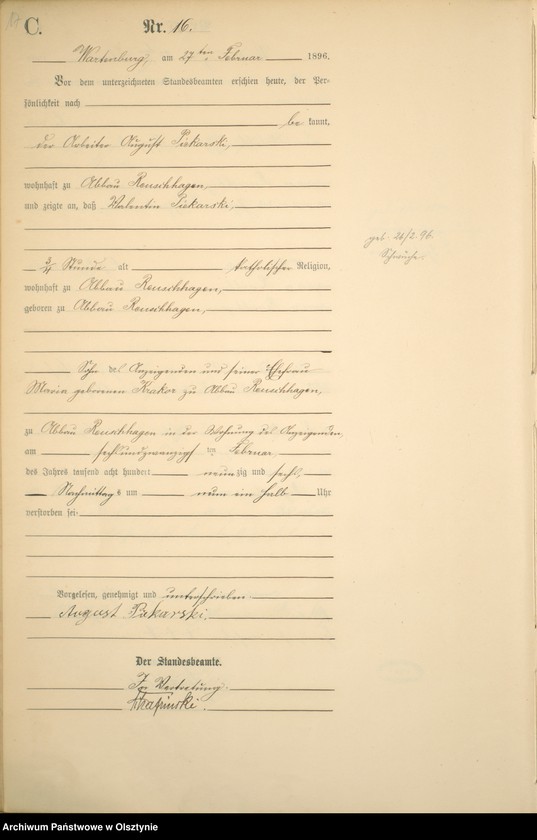 C.
Nr. 16.
Wartenburg, am 27ten Februar 1896.
Vor dem unterzeichneten Standesbeamten erschien heute, der Per-
sönlichkeit nach
be kannt,
der Arbeiter August Piekarski,
wohnhaft zu Abbau Reuschhagen,
und zeigte an, daß Valentin Piekarski,
geb. 26/2. 96.
Schwäche.
3/4 Stunde alt katholischer Religion,
wohnhaft zu Abbau Reuschhagen,
geboren zu Abbau Reuschhagen,
Sohn des Anzeigenden und seiner Ehefrau
Maria geborenen Krakor zu Abbau Reuschhagen,
zu Abbau Reuschhagen in der Wohnung des Anzeigenden,
am sechsundzwanzigsten Februar
des Jahres tausend acht hundert neunzig und sechs,
Nachmittags um neun ein halb Uhr
verstorben sei.
Vorgelesen, genehmigt und unterschrieben
August Piekarski
Der Standesbeamte.
In Vertretung.
Archiwum Państwowe w Olsztynie